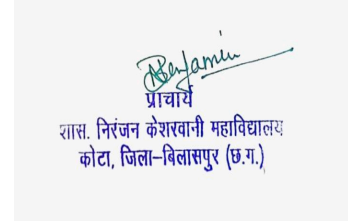 Benjamin
प्राचार्य
शास. निरंजन केशरवानी महाविद्यालय
कोटा, जिला–बिलासपुर (छ.ग.)